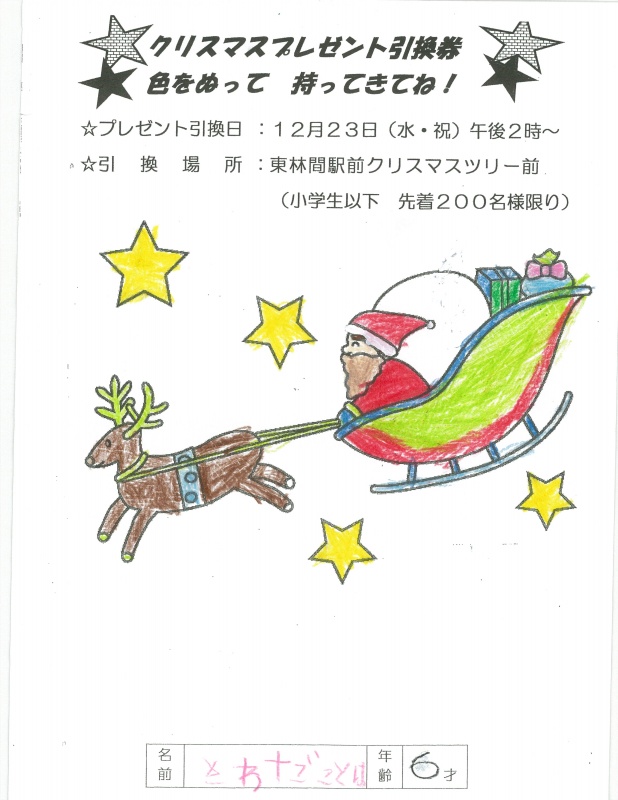 クリスマスプレゼント引換券
色をぬって 持ってきてね！
☆プレゼント引換日 ：１２月２３日（水・祝）午後２時～
☆引 換 場 所 ：東林間駅前クリスマスツリー前
（小学生以下 先着２００名様限り）
名前
年齢 6 才